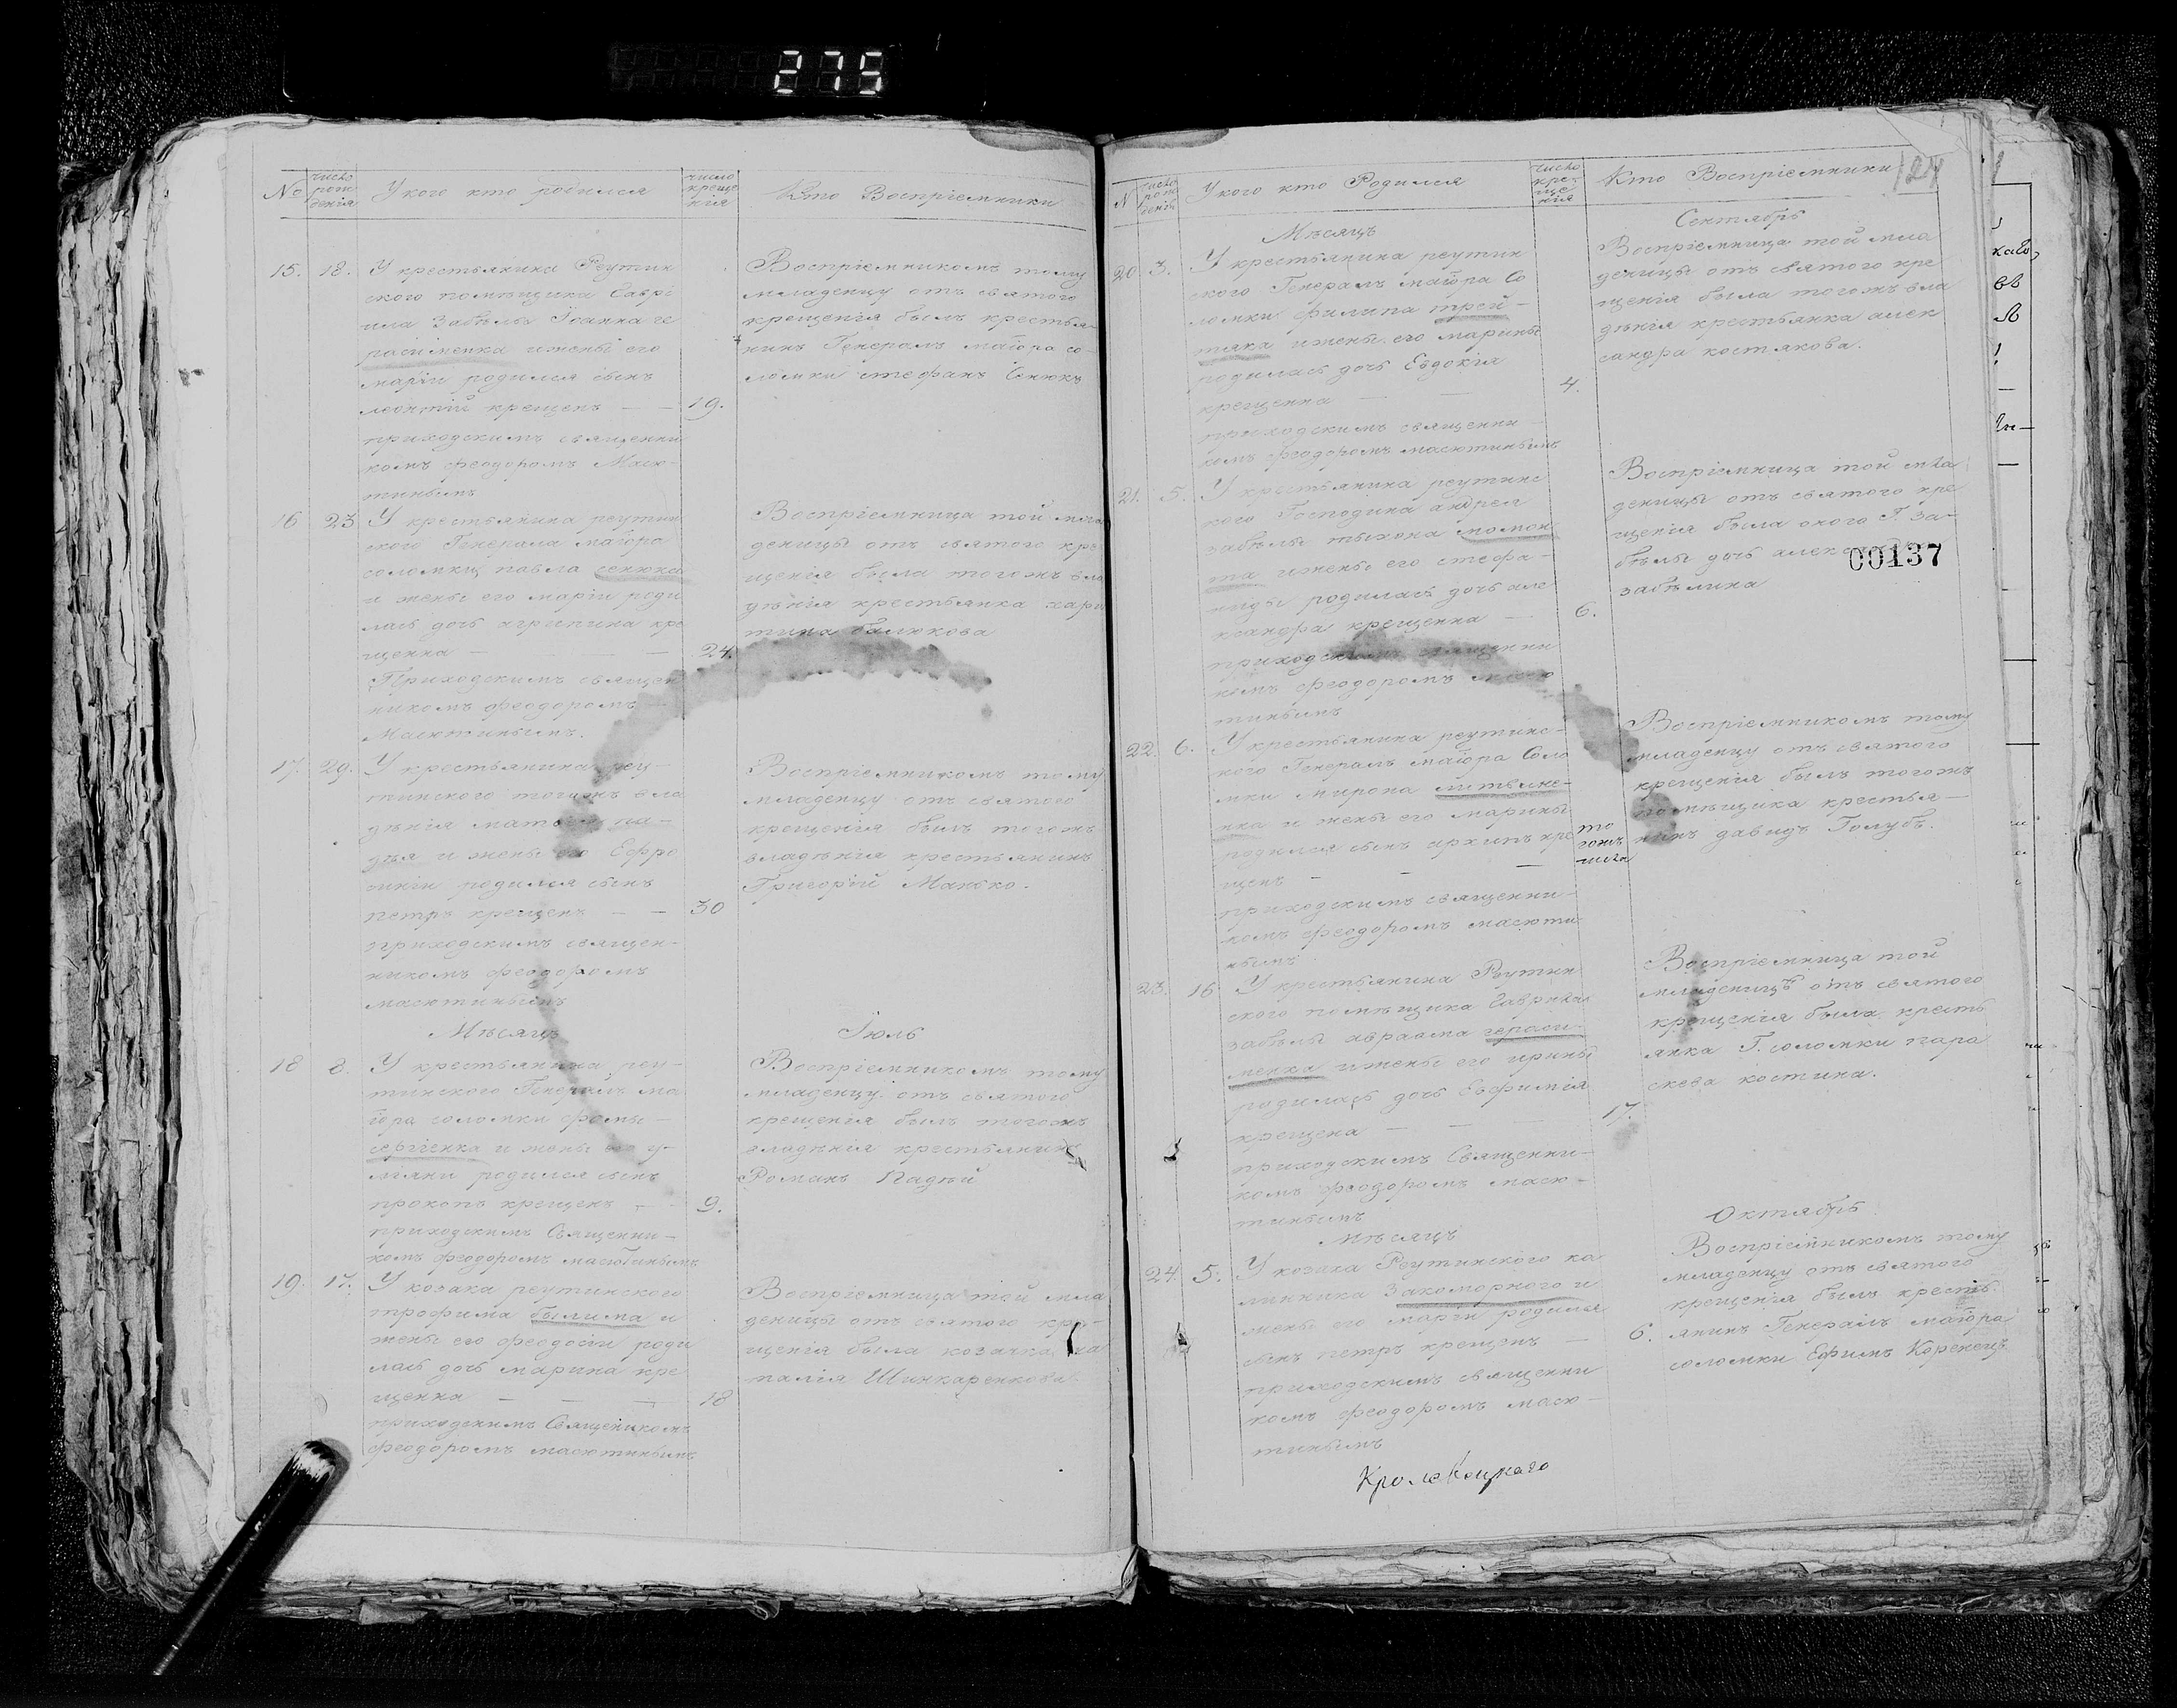 275
№
число рож дения
У кого кто родился
число креще нія
Кто Воспріемники
15. 18.
У крестьянина Реутин
ского помѣщика Гаврі
ила Забѣлы Іоанна ге
расименка и жены его
маріи родился сынъ
леонтій крещенъ — —
19.
приходскимъ священни
комъ феодоромъ Масю-
тинымъ
Воспріемникомъ тому
младенцу отъ святого
крещенія былъ крестья-
нинъ Генералъ маіора со-
ломки стефанъ Сенюкъ
16 23
У крестьянина реутин
ского Генерала маіора
соломки павла сенюка
и жены его маріи роди
лась дочь агрипина кре
щенна — —
24.
Приходскимъ священ
никомъ феодоромъ —
Масютинымъ.
Воспріемница той мла
деницы отъ святого кре
щенія была тогожъ вла
дѣнія крестьянка хари
тина балюкова
17. 29.
У крестьянина реу-
тинского тогожъ вла
дѣнія матвея па-
дѣя и жены его Ефро
синіи родился сынъ
петръ крещенъ — —
30
приходскимъ священ-
никомъ феодоромъ
масютинымъ
Воспріемникомъ тому
младенцу отъ святого
крещенія былъ тогожъ
владѣнія крестьянинъ
Григорій Манько.
Мѣсяцъ
Іюль
18 8.
У крестьянина реу-
тинского Генералъ ма
іора соломки фомы —
сергіенка и жоны его у-
ляни родился сынъ
прокопъ крещенъ — —
9.
приходскимъ Священни-
комъ феодоромъ масютинымъ
Воспріемникомъ тому
младенцу отъ святого
крещенія былъ тогожъ
владѣнія крестьянинъ
Романъ Падѣй
19. 17.
У козака реутинского
трофима былима и
жены его феодосіи роди
лась дочь марина кре
щенна — — —
18
приходскимъ Священикомъ
феодоромъ масютинымъ
Воспріемница той мла
деницы отъ святого кре-
щенія была козачка на
талія Шинкаренкова
N
число рож деній
У кого кто Родился
число кре- ще нія
Кто Воспріемники
124
Мѣсяцъ
Сентябрь
20 3.
У крестьянина реутин
ского Генералъ маіора Со
ломки филипа трей-
тяка и жены его марины
родилась дочь Евдокія
крещенна — —
4.
приходскимъ священни —
комъ феодоромъ масютинымъ
Воспріемница той мла
деницы отъ святого кре
щенія была тогожъ вла
дѣнія крестьянка алек
сандра костякова.
21. 5.
У крестьянина реутинс
кого Господина андрея
забѣлы тыхона момон
та и жены его стефа-
ниды родилась дочь але
ксандра крещенна —
6.
приходскимъ священни
комъ феодоромъ масю
тинымъ
Воспріемница той мла
деницы отъ святого кре
щенія была оного Г. За-
бѣлы дочь александра
забѣлина
00137
22. 6.
У крестьянина реутинс-
кого Генералъ маіора Соло
мки мирона литвине-
нка и жены его марины
родился сынъ архипъ кре
щенъ — — —
то гожъ числа
приходскимъ священни-
комъ феодоромъ масюти-
нымъ
Воспріемникомъ тому
младенцу отъ святого
крещенія былъ тогожъ
помѣщика крестья—
нинъ давидъ Голубъ.
23. 16
У крестьянина Реутин
ского помѣщика Гавриила
забѣлы авраама гераси-
менка и жены его ирины
родилась дочь Евфимія
крещена — — —
17.
приходскимъ Священни-
комъ феодоромъ масю-
тинымъ
Воспріемница той
младеницѣ отъ святого
крещенія была кресть
янка Г. соломки пара
скева костина.
Мѣсяцъ
Октябрь
24. 5.
У козака Реутинского ка
линника Закоморного и
жены его маріи родился
сынъ петръ крещенъ —
6.
приходскимъ священни
комъ феодоромъ масю-
тинымъ
Воспріемникомъ тому
младенцу отъ святого
крещенія былъ кресть-
янинъ Генералъ маіора
соломки Ефимъ Коренецъ
Кролевецкаго